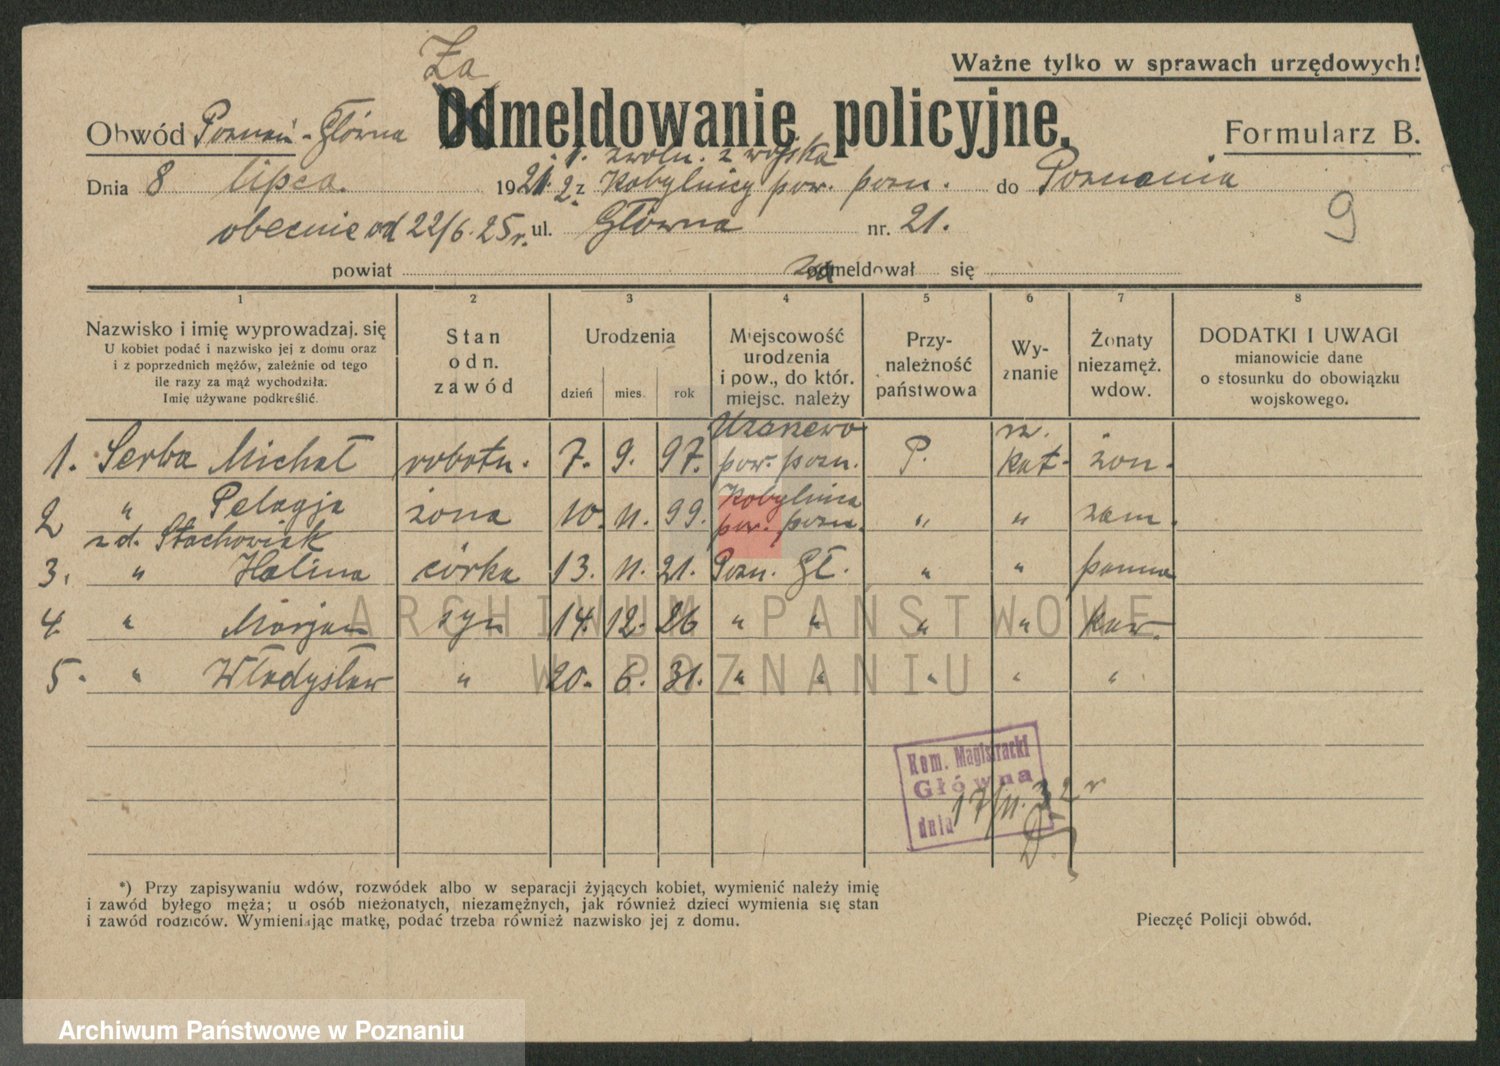 Za
Ważne tylko w sprawach urzędowych!
Odmeldowanie policyjne.
Obwód Poznań-Główna
Formularz B.
1. zwoln. z wojska
Dnia 8 lipca 1921. 2. z Kobylnicy pow. pozn. do Poznania
obecnie od 22/6.25 r. ul. Główna nr. 21.
9
powiat odmeldował się
1 2 3 4 5 6 7 8
Nazwisko i imię wyprowadzaj. się
U kobiet podać i nazwisko jej z domu oraz
i z poprzednich mężów, zależnie od tego
ile razy za mąż wychodziła.
Imię używane podkreślić.
Stan
odn.
zawód
Urodzenia
dzień mies. rok
Miejscowość
urodzenia
i pow., do któr.
miejsc. należy
Przy-
należność
państwowa
Wy-
znanie
Żonaty
niezamęż.
wdow.
DODATKI I UWAGI
mianowicie dane
o stosunku do obowiązku
wojskowego.
1. Serba Michał robotn. 7. 9. 97. Uzarzewo pow. pozn. P. rz. kat. żon.
2 " Pelagja żona 10. 11. 99. Kobylnica pow. pozn. " " zam.
z d. Stachowiak
3. " Halina córka 13. 11. 21. Pozn. Gł. " " panna
4. " Marjan syn 14. 12. 26 " " " " kaw.
5. " Władysław " 20. 6. 31. " " " " "
Kom. Magistracki
Główna
dnia 17/11. 32 r
*) Przy zapisywaniu wdów, rozwódek albo w separacji żyjących kobiet, wymienić należy imię
i zawód byłego męża; u osób nieżonatych, niezamężnych, jak również dzieci wymienia się stan
i zawód rodziców. Wymieniając matkę, podać trzeba również nazwisko jej z domu.
Pieczęć Policji obwód.
ARCHIWUM PAŃSTWOWE
W POZNANIU
Archiwum Państwowe w Poznaniu